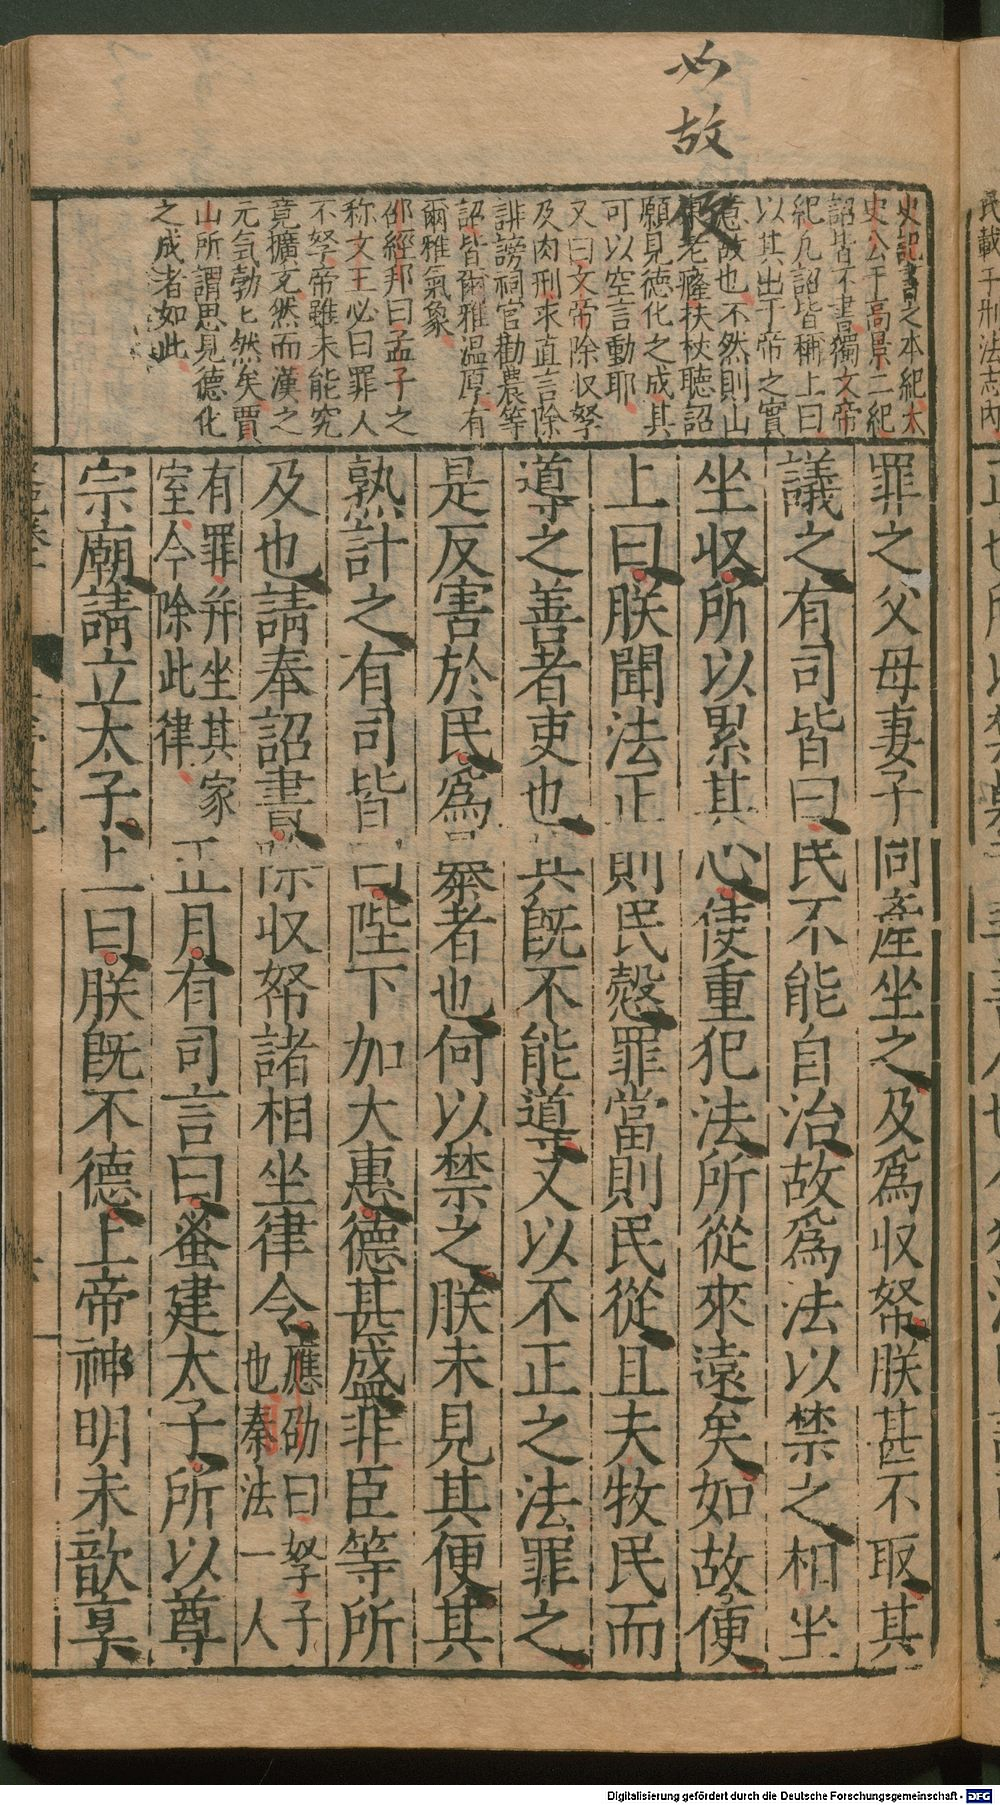 如故便
史記書之本紀太
史公于高景二紀
詔皆不書獨文帝
紀凡詔皆稱上曰
以其出于帝之實
意故也不然則山
東老癃扶杖聽詔
願見德化之成其
可以空言動耶
又曰文帝除収孥
及肉刑求直言除
誹謗祠官勸農等
詔皆爾雅温厚有
爾雅氣象
邵經邦曰孟子之
称文王必曰罪人
不孥帝雖未能究
竟擴充然而漢之
元気勃〻然矣賈
山所謂思見德化
之成者如此
罪之父母妻子同產坐之及爲収帑朕甚不取其
議之有司皆曰民不能自治故爲法以禁之相坐
坐収所以累其心使重犯法所從來遠矣如故便
上曰朕聞法正則民慤罪當則民從且夫牧民而
導之善者吏也其既不能導又以不正之法罪之
是反害於民爲暴者也何以禁之朕未見其便其
熟計之有司皆曰陛下加大惠德甚盛非臣等所
及也請奉詔書除収帑諸相坐律令應劭曰孥子
也秦法一人
有罪并坐其家
室今除此律正月有司言曰蚤建太子所以尊
宗廟請立太子上曰朕既不德上帝神明未歆享
Digitalisierung gefördert durch die Deutsche Forschungsgemeinschaft - DFG